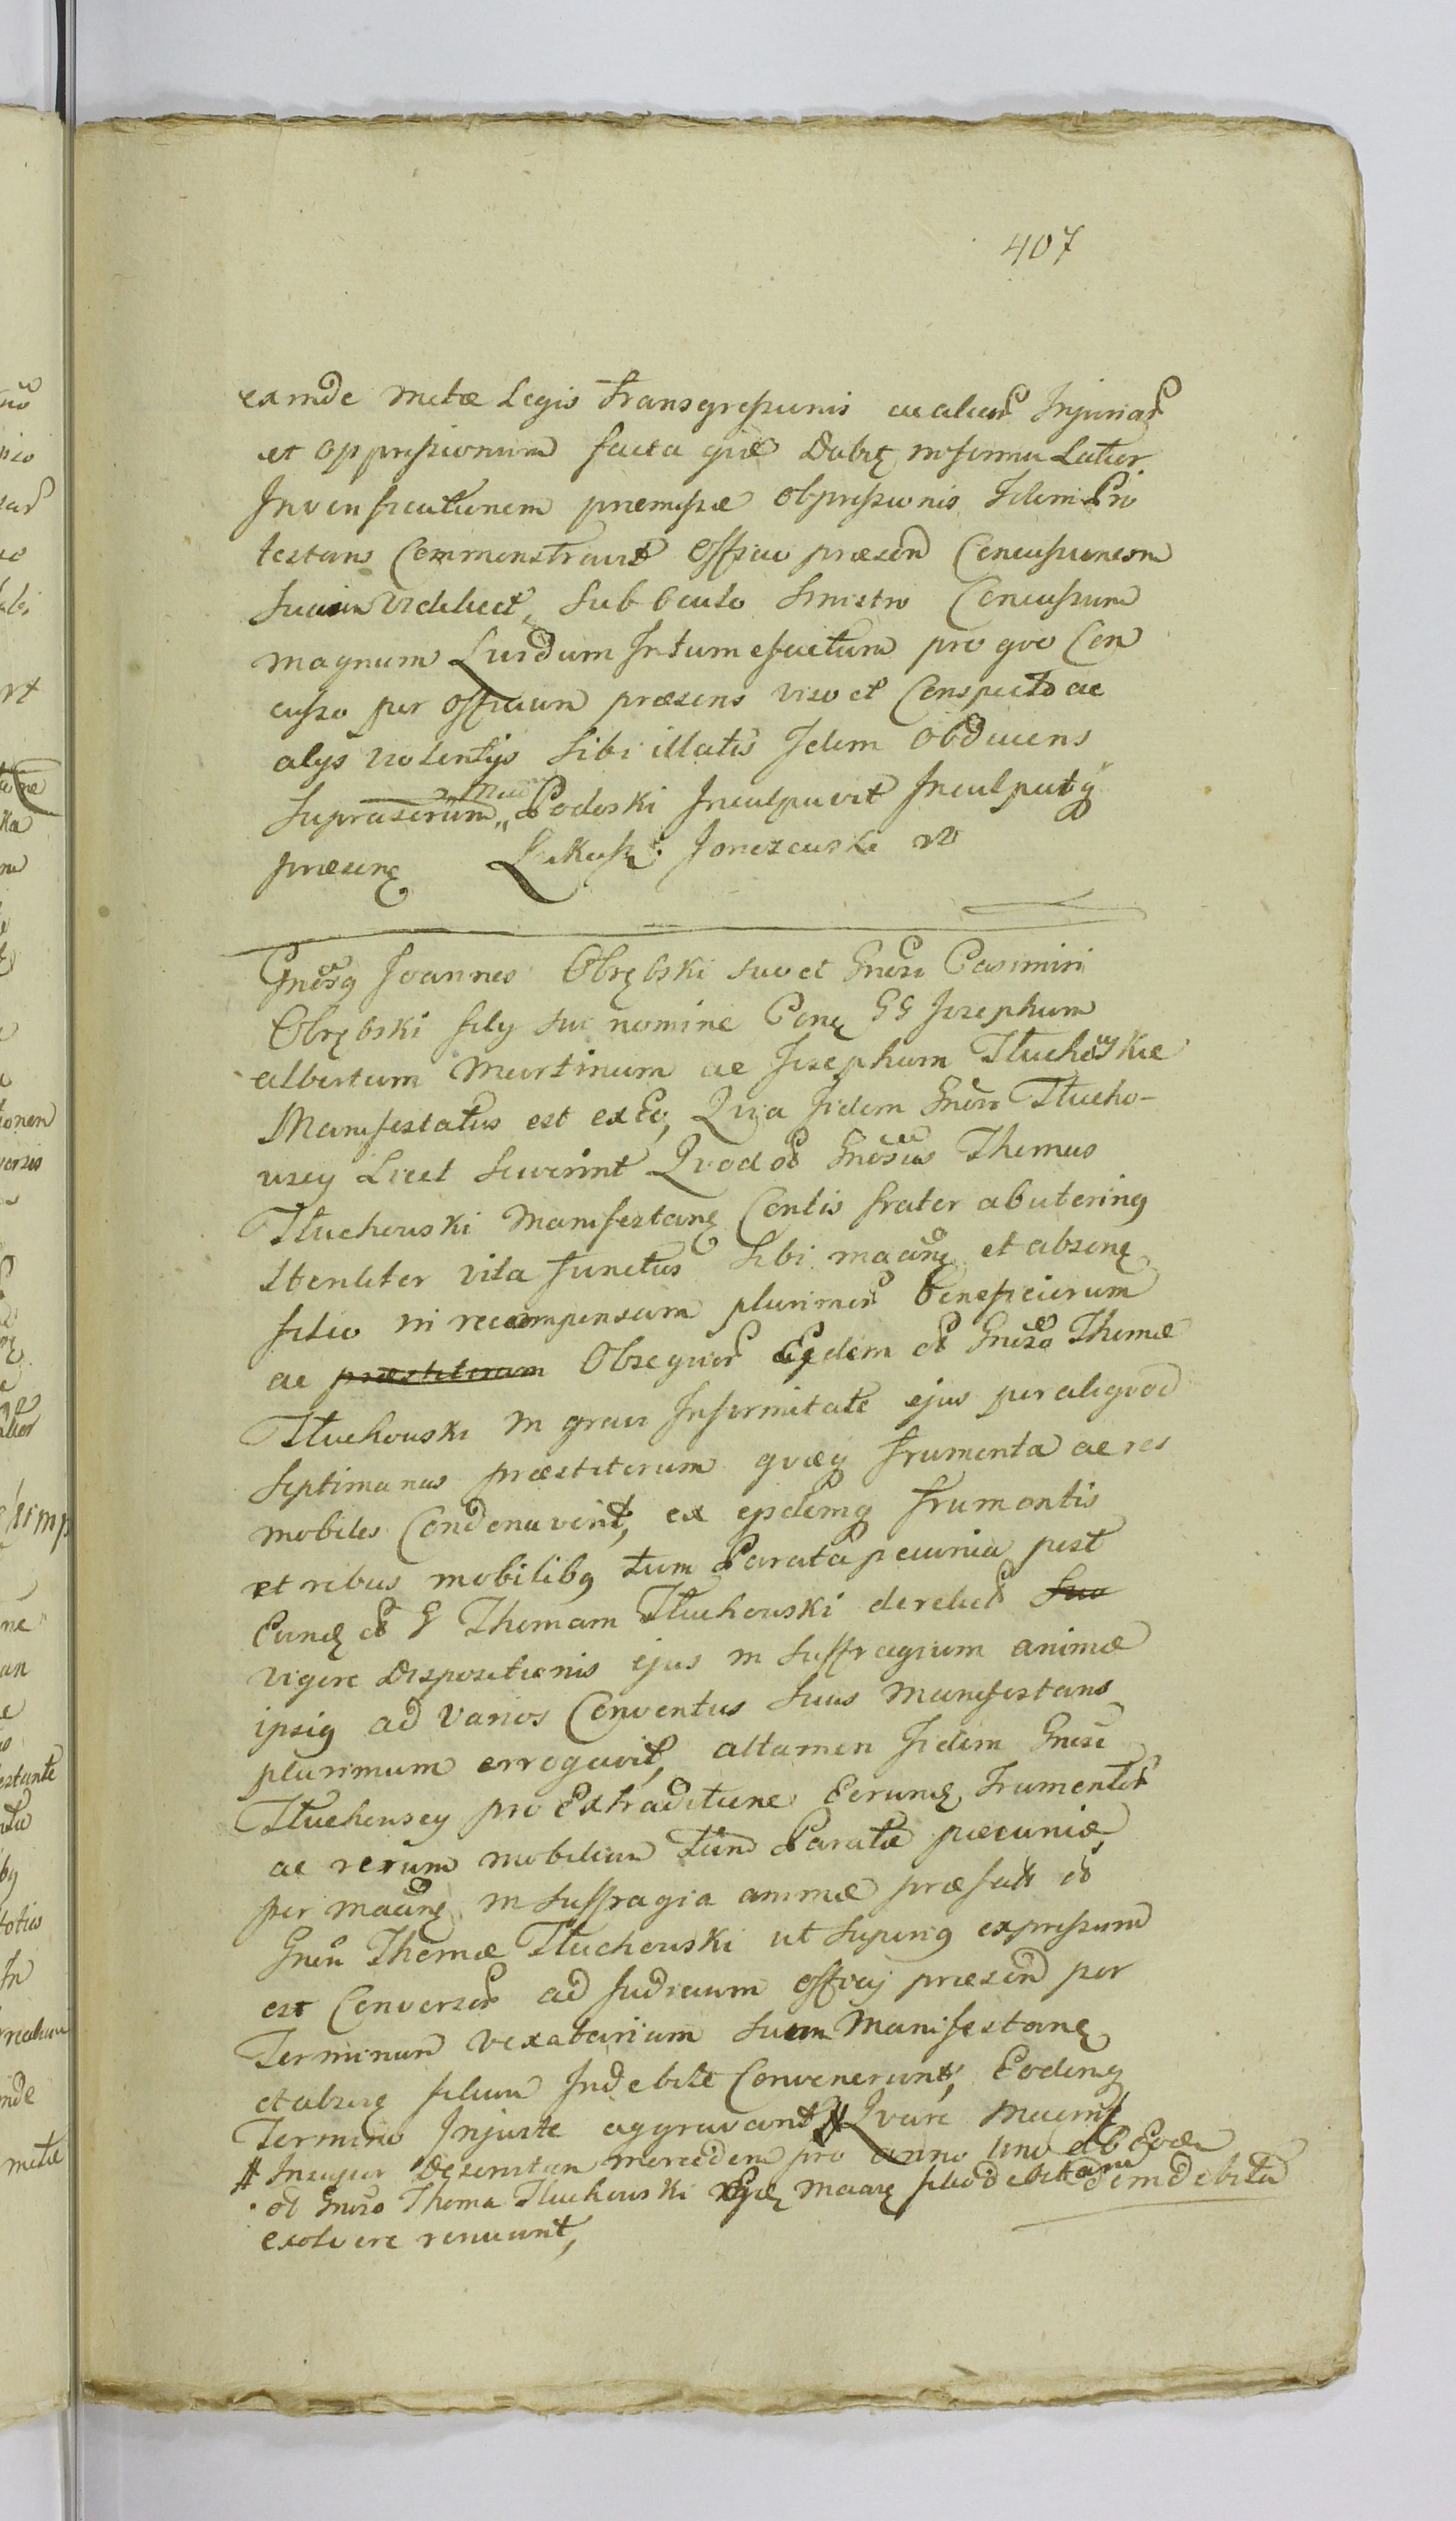 407
exinde metæ Legis transgressionis ac aliar Injuriar
et oppressionum facta qræ Dabtę insimu Latior
In verificationem præmissæ obpressionis Idem Pro
testans Commonstravit Officio præsen Concussionem
suam videlicet, sub oculo sinistro Concussum
magnum Lividum Intumefactum pro qvo Con
cusso per officium præsens viso et Conspecto ac
alys violentijs sibi illatis Idem obducens
supraserium Podoski Inculpavit Inculpatq
præsenę Łukasz Jonczewski
Gnosq Joannes Obrębski suo et Gnosi Casimiri
Obrębski fily sui nomine Conę GG Josephum
albertum Martinum ac Josephum Tłuchowskie
Manifestatus est ex Eo, Qvia Iidem Gnosi Tłucho-
vscy Licet sciverint Qvod ol Gnosus Thomas
Tłuchowski Manifestanę Contis frater ab uterinq
steriliter vita functus sibi maanę et absenę
filio in recompensam plurimor beneficiorum
ac præstiterum Obseqvior Eidem ol Gnoso Thomæ
Tłuchowski in gravi Infirmitate ejus per aliqvod
septimanas præstiterum qvæq frumenta ac res
mobiles Condonaverit, ex ejsdemq frumentis
et rebus mobilibq tum Parata pecunia post
Eundę ol G Thomam Tłuchowski derelict suo
vigore Dispositionis ejus in suffragium animæ
ipsiq ad varios Conventus suus Manifestans
plurimum errogavit, attamen Iidem Gnosi
Tłuchowscy pro Extraditione Eorundę frumentor
ac rerum mobilium tum Paratæ pæcuniæ,
per maanę in suffragia animæ præfati ol
Gnosi Thomæ Tłuchowski ut superiq expressum
est Conversor ad Judicium offcij præsen per
Terminum vexatorium suum Manifestanę
et absenę filium Indebite Convenerunt, Eodemq
Termino Injuste aggravant # Qvare maanę
# Insuper Deservitam mercedem pro anno uno ab Eodem
ol Gnoso Thoma Tłuchowski Ejdę maanę filio debitam indebite
exolvere renuunt,